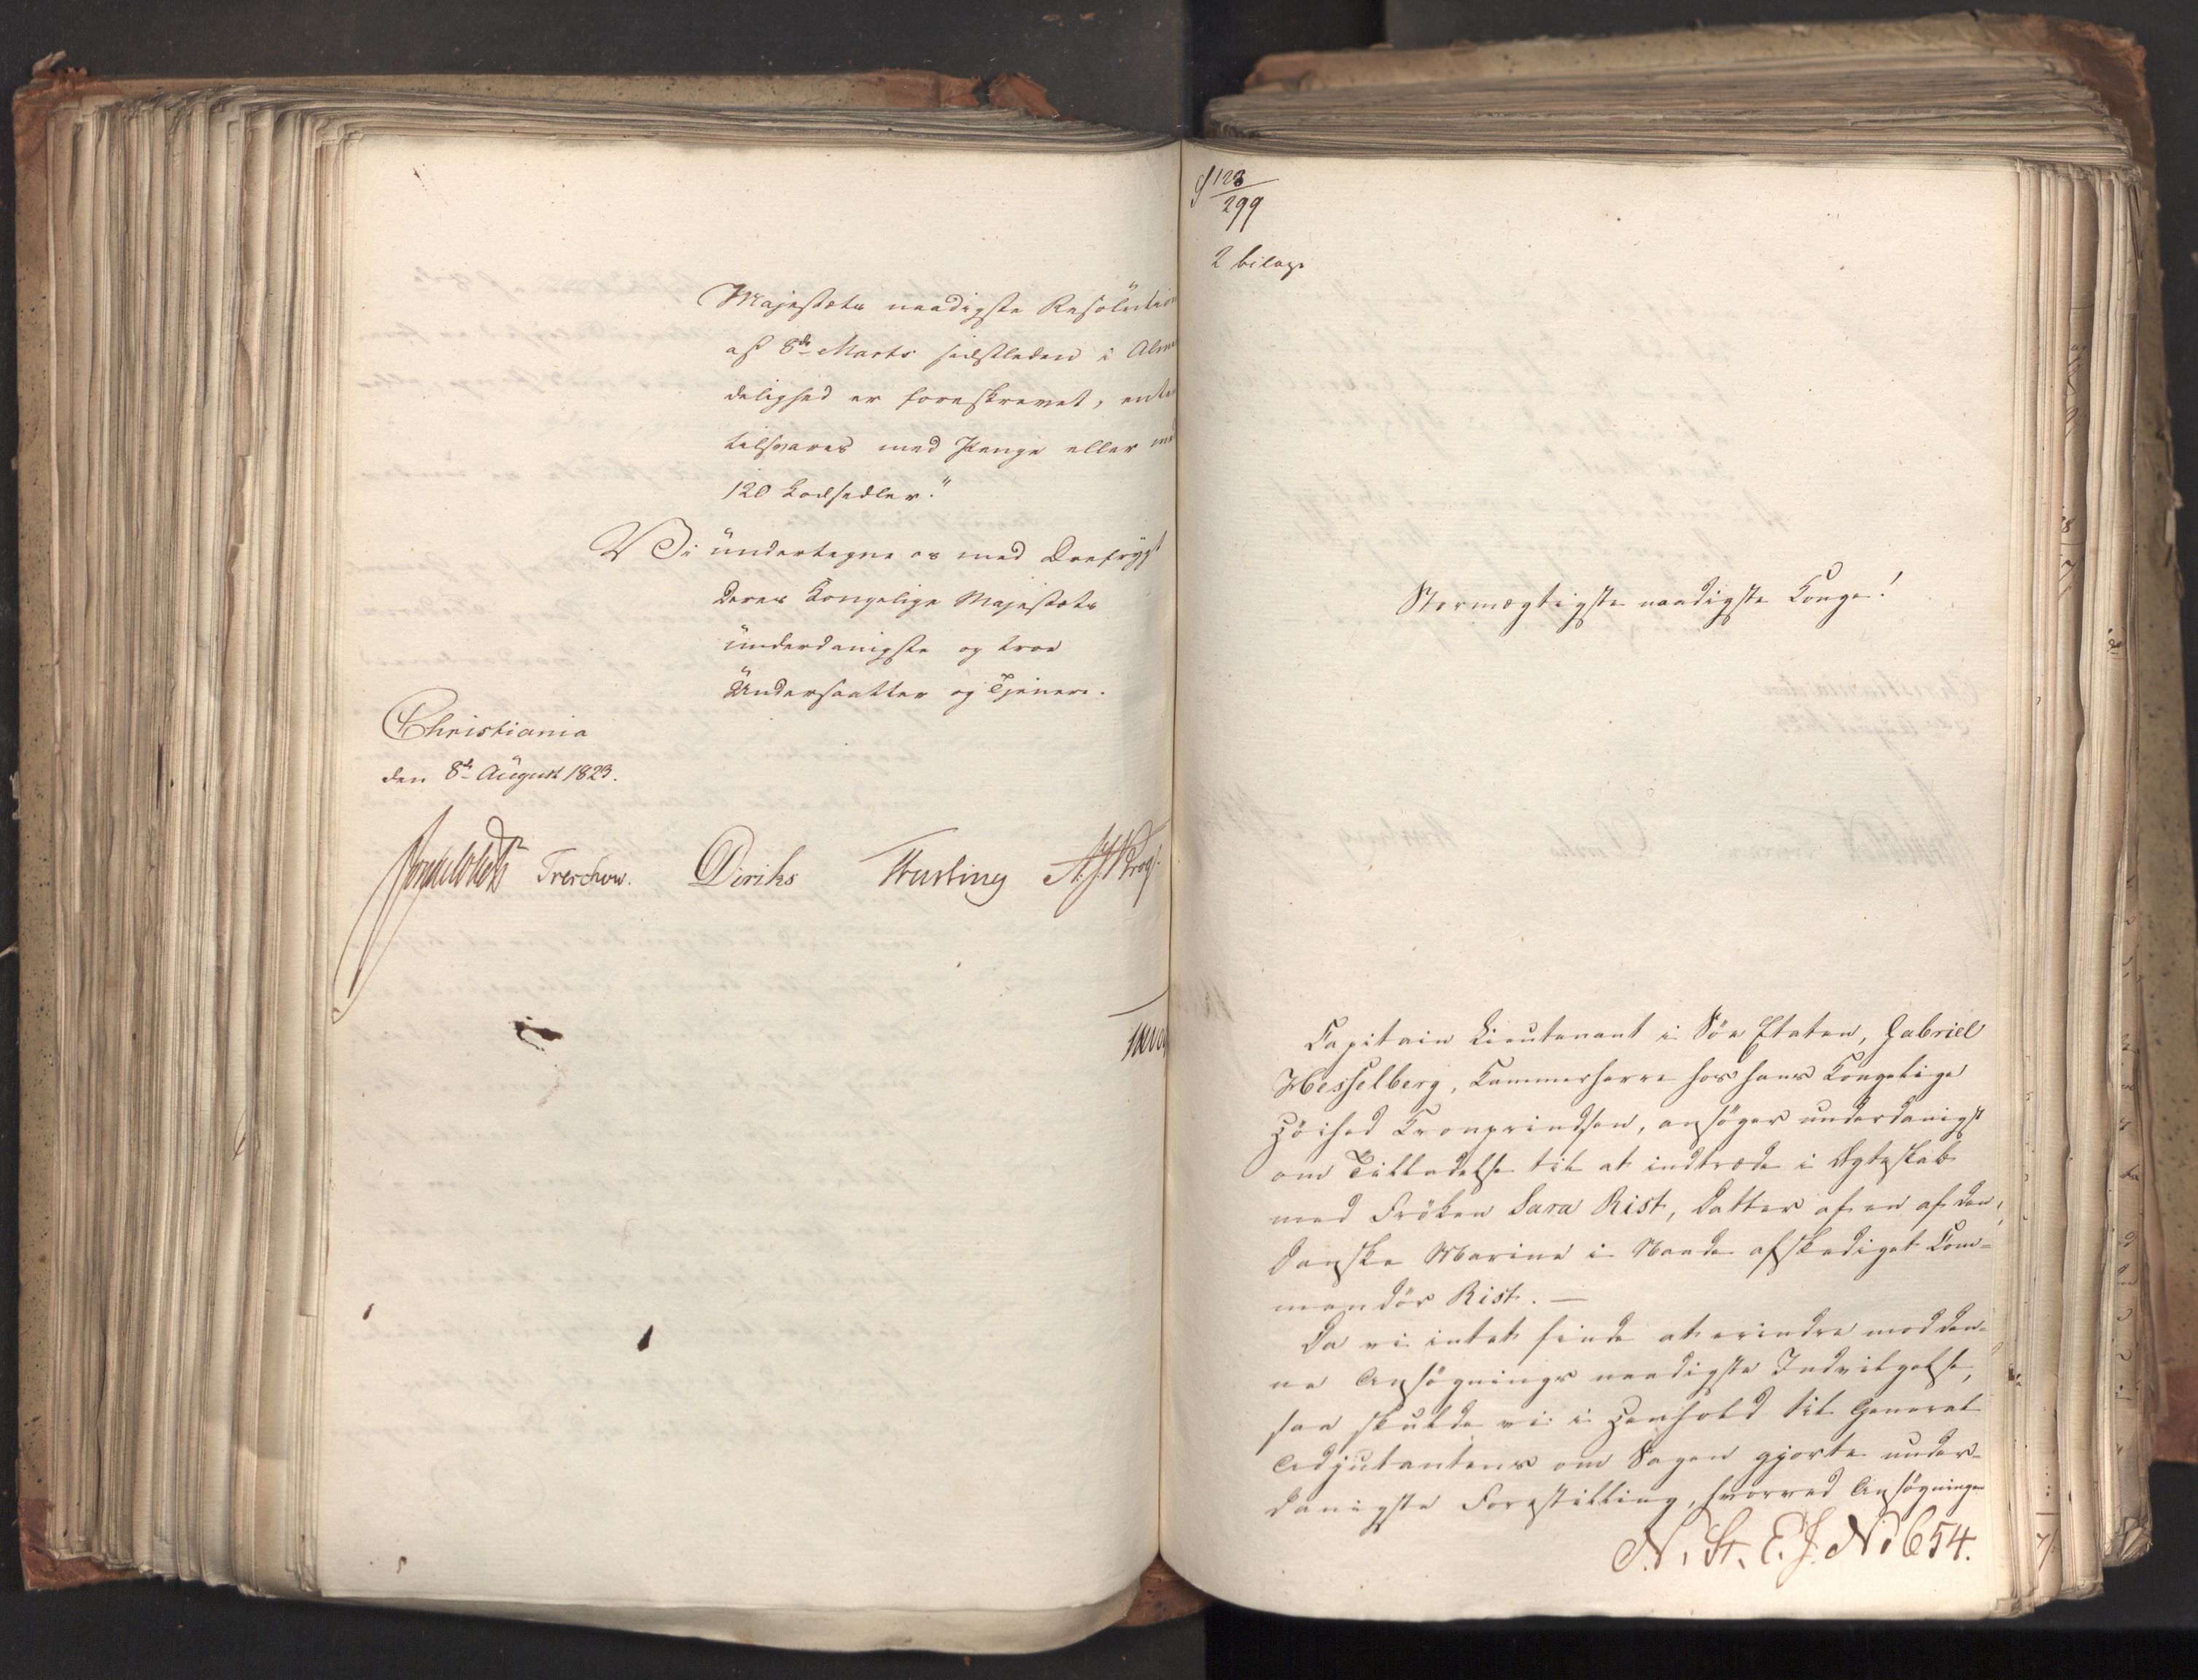 Majestæts naadigste Resolution
af 8de Marts sidstleden i Alm
delighed er foreskrevet, enten
tilsvares med Penge eller med
120 Lodsedler."
Vi undertegne os med Ærefrygt
Deres Kongelige Majestæts
underdanigste og troe
Undersaatter og Tjenere.
Christiania
den 8de August 1823.
Treschow. Diriks
S 123/299
2 bilage
Stormægtigste naadigste Konge!
Capitain Lieutenant i Søe Etaten, Gabriel
Hesselberg, Kammerherre hos hans Kongelige
Høihed Kronprindsen, ansøger underdanigst
om Tilladelse til at indtræde i Ægteskab
med Frøken Sara Rist, Datter af en af den
danske Marine i Naade afskediget Com-
mandør Rist. —
Da vi intet finde at erindre mod den-
ne Ansøgnings naadigste Indvilgelse,
saa skulde vi i Henhold til General
Adjutantens om Sagen gjorte under-
danigste Forestilling, hvorved Ansøgningen
N. St. E. J. No 654.